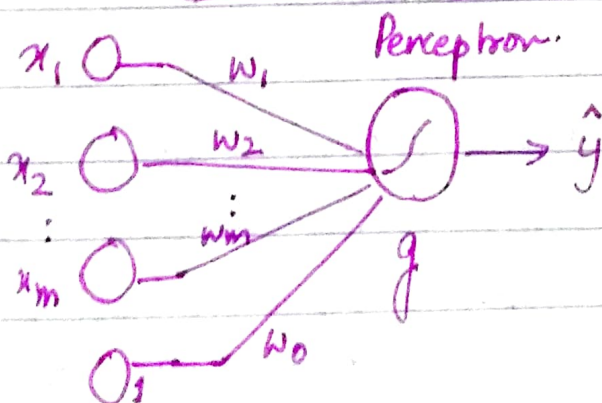 Perceptron.
x₁ w₁
x₂ w₂ ŷ
⋮ ⋮
xₘ wₘ g
1 w₀